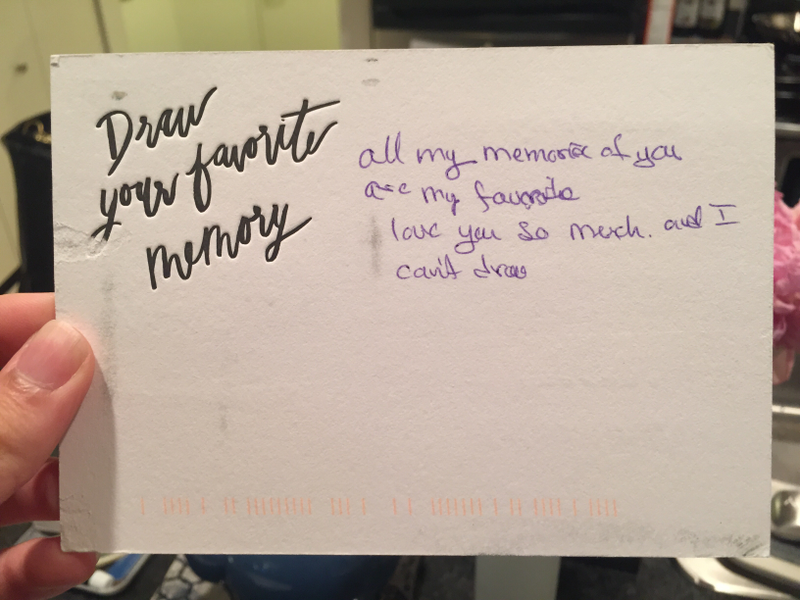 Draw
your favorite
memory
all my memories of you
are my favorite
love you so much. and I
can't draw